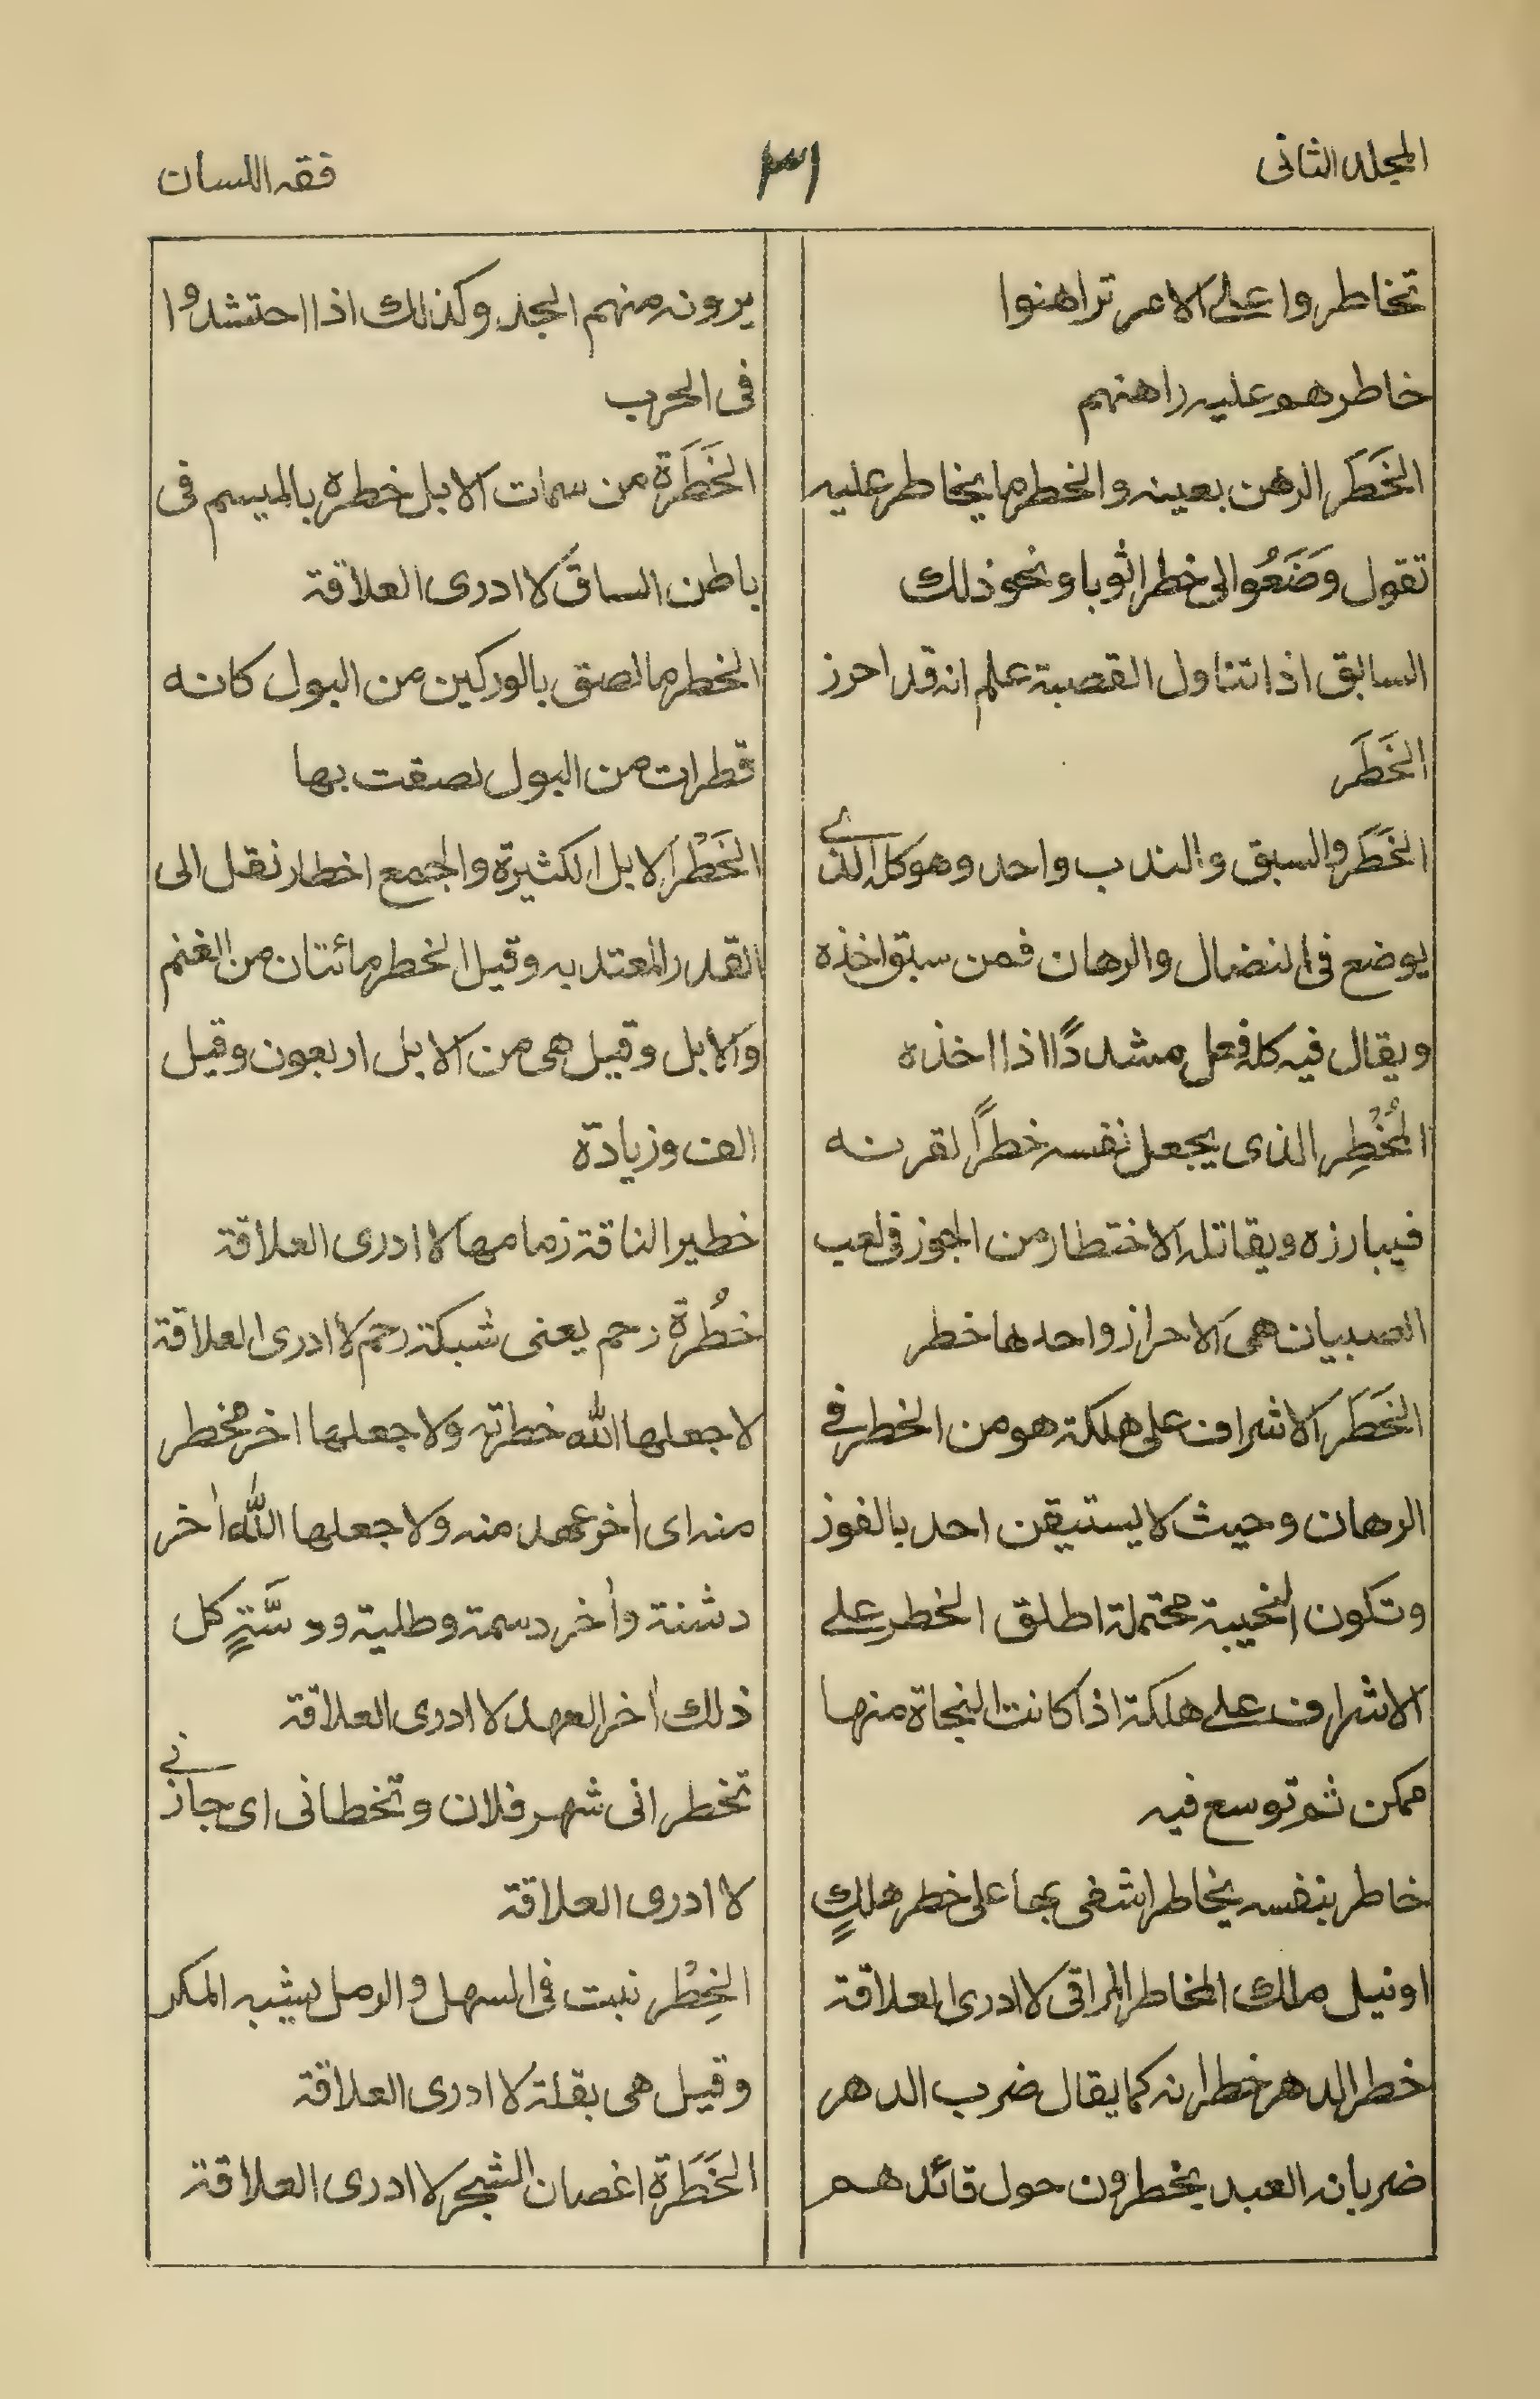 المجلد الثانى
٣١
فقه اللسان
تخاطروا على الامر تراهنوا
خاطرهم عليه راهنهم
الخَطَر الرهن بعينه والخطر ما يخاطر عليه
تقول وَضَعُوا لى خطرا ثوبا ونحو ذلك
السابق اذا تناول القصبة علم انه قد احرز
الخَطَر
الخَطَر والسبق والندب واحد وهو كله الذى
يوضع فى النضال والرهان فمن سبق اخذه
ويقال فيه كله فعل مشددًا اذا اخذه
المُخْطِر الذى يجعل نفسه خطرًا لقرنه
فيبارزه ويقاتله الاختطار من الجوز فى لعب
الصبيان هى الاحراز واحدها خطر
الخَطَر الاشراف على هلكة هو من الخطر فے
الرهان وحيث لا يستيقن احد بالفوز
وتكون الخيبة محتملة اطلق الخطر على
الاشراف على هلكة اذا كانت النجاة منها
ممكن ثم توسع فيه
خاطر بنفسه يخاطر اشفى بها على خطر هلكٍ
او نيل ملك المخاطر المراقى لا ادرى العلاقة
خطر الدهر خطرانه كما يقال ضرب الدهر
ضربانه العبد يخطرون حول قائدهم
يرونه منهم الجد وكذلك اذا احتشدوا
فى الحرب
الخَطَرَة من سمات الابل خطره بالميسم فى
باطن الساق لا ادرى العلاقة
الخطر ما لصق بالوركين من البول كانه
قطرات من البول لصقت بها
الخَطْر الابل الكثيرة والجمع اخطار نقل الى
القدر المعتد به وقيل الخطر مائتان من الغنم
والابل وقيل هى من الابل اربعون وقيل
الف وزيادة
خطير الناقة زمامها لا ادرى العلاقة
خُطْرة رحم يعنى شبكة رحم لا ادرى العلاقة
لا جعلها الله خطرته ولا جعلها اخر مخطر
منه اى أخر عهد منه ولا جعلها الله أخر
دشنة وأخر دسمة وطلية ودسَّةٍ كل
ذلك أخر العهد لا ادرى العلاقة
تخطرانى شهر فلان وتخطانى اى جازنى
لا ادرى العلاقة
الخِطْر نبت فى السهل والرمل يشبه المكر
وقيل هى بقلة لا ادرى العلاقة
الخَطَرَة اغصان الشجر لا ادرى العلاقة